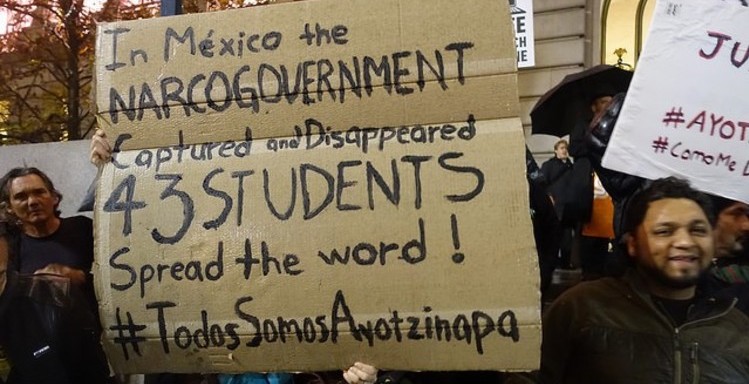 In México the
NARCOGOVERNMENT
Captured and Disappeared
43 STUDENTS
Spread the word!
#TodosSomosAyotzinapa
JU
#AYOT
#ComoMe